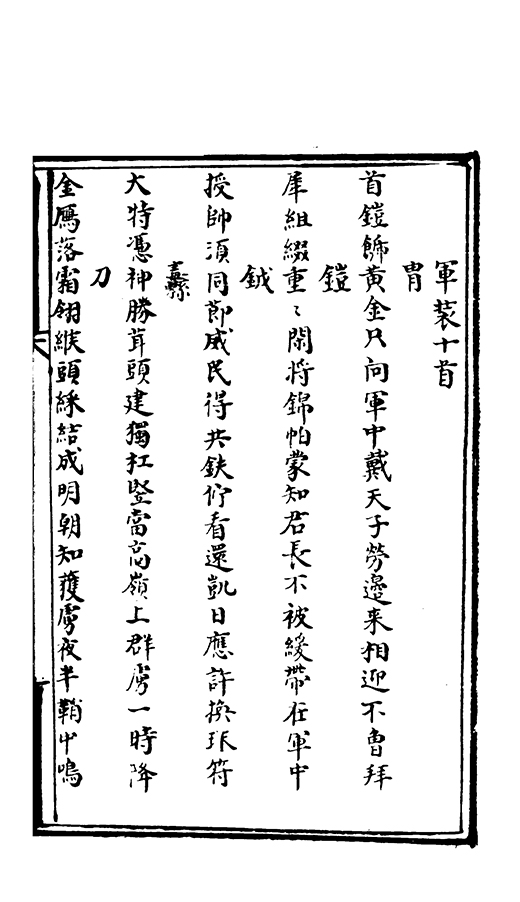 軍裝十首
胄
首鎧飾黃金只向軍中戴天子勞邊来相迎不曾拜
鎧
犀組綴重〻閑將錦帕蒙知君長不被緩帶在軍中
鉞
授帥須同節威民得共鈇佇看還凱日應許換珎符
纛
大特憑神勝茸頭建獨扛竖當高嶺上群虜一時降
刀
金鴈落霜翎緱頭綵結成明朝知獲虜夜半鞘中鳴